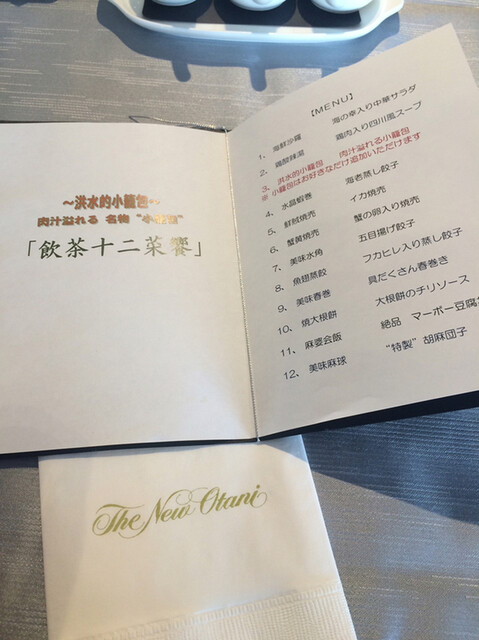 〜洪水的小籠包〜
肉汁溢れる 名物 “小籠包”
「飲茶十二菜饗」
【MENU】
1、 海鮮沙羅 海の幸入り中華サラダ
2、 鶏酸辣湯 鶏肉入り四川風スープ
3、 洪水的小籠包 肉汁溢れる小籠包
※ 小籠包はお好きなだけ追加いただけます
4、 水晶蝦巻 海老蒸し餃子
5、 鮮鱿焼売 イカ焼売
6、 蟹黄焼売 蟹の卵入り焼売
7、 美味水角 五目揚げ餃子
8、 魚翅蒸餃 フカヒレ入り蒸し餃子
9、 美味春巻 具だくさん春巻き
10、 焼大根餅 大根餅のチリソース
11、 麻婆会飯 絶品 マーボー豆腐
12、 美味麻球 “特製” 胡麻団子
The New Otani